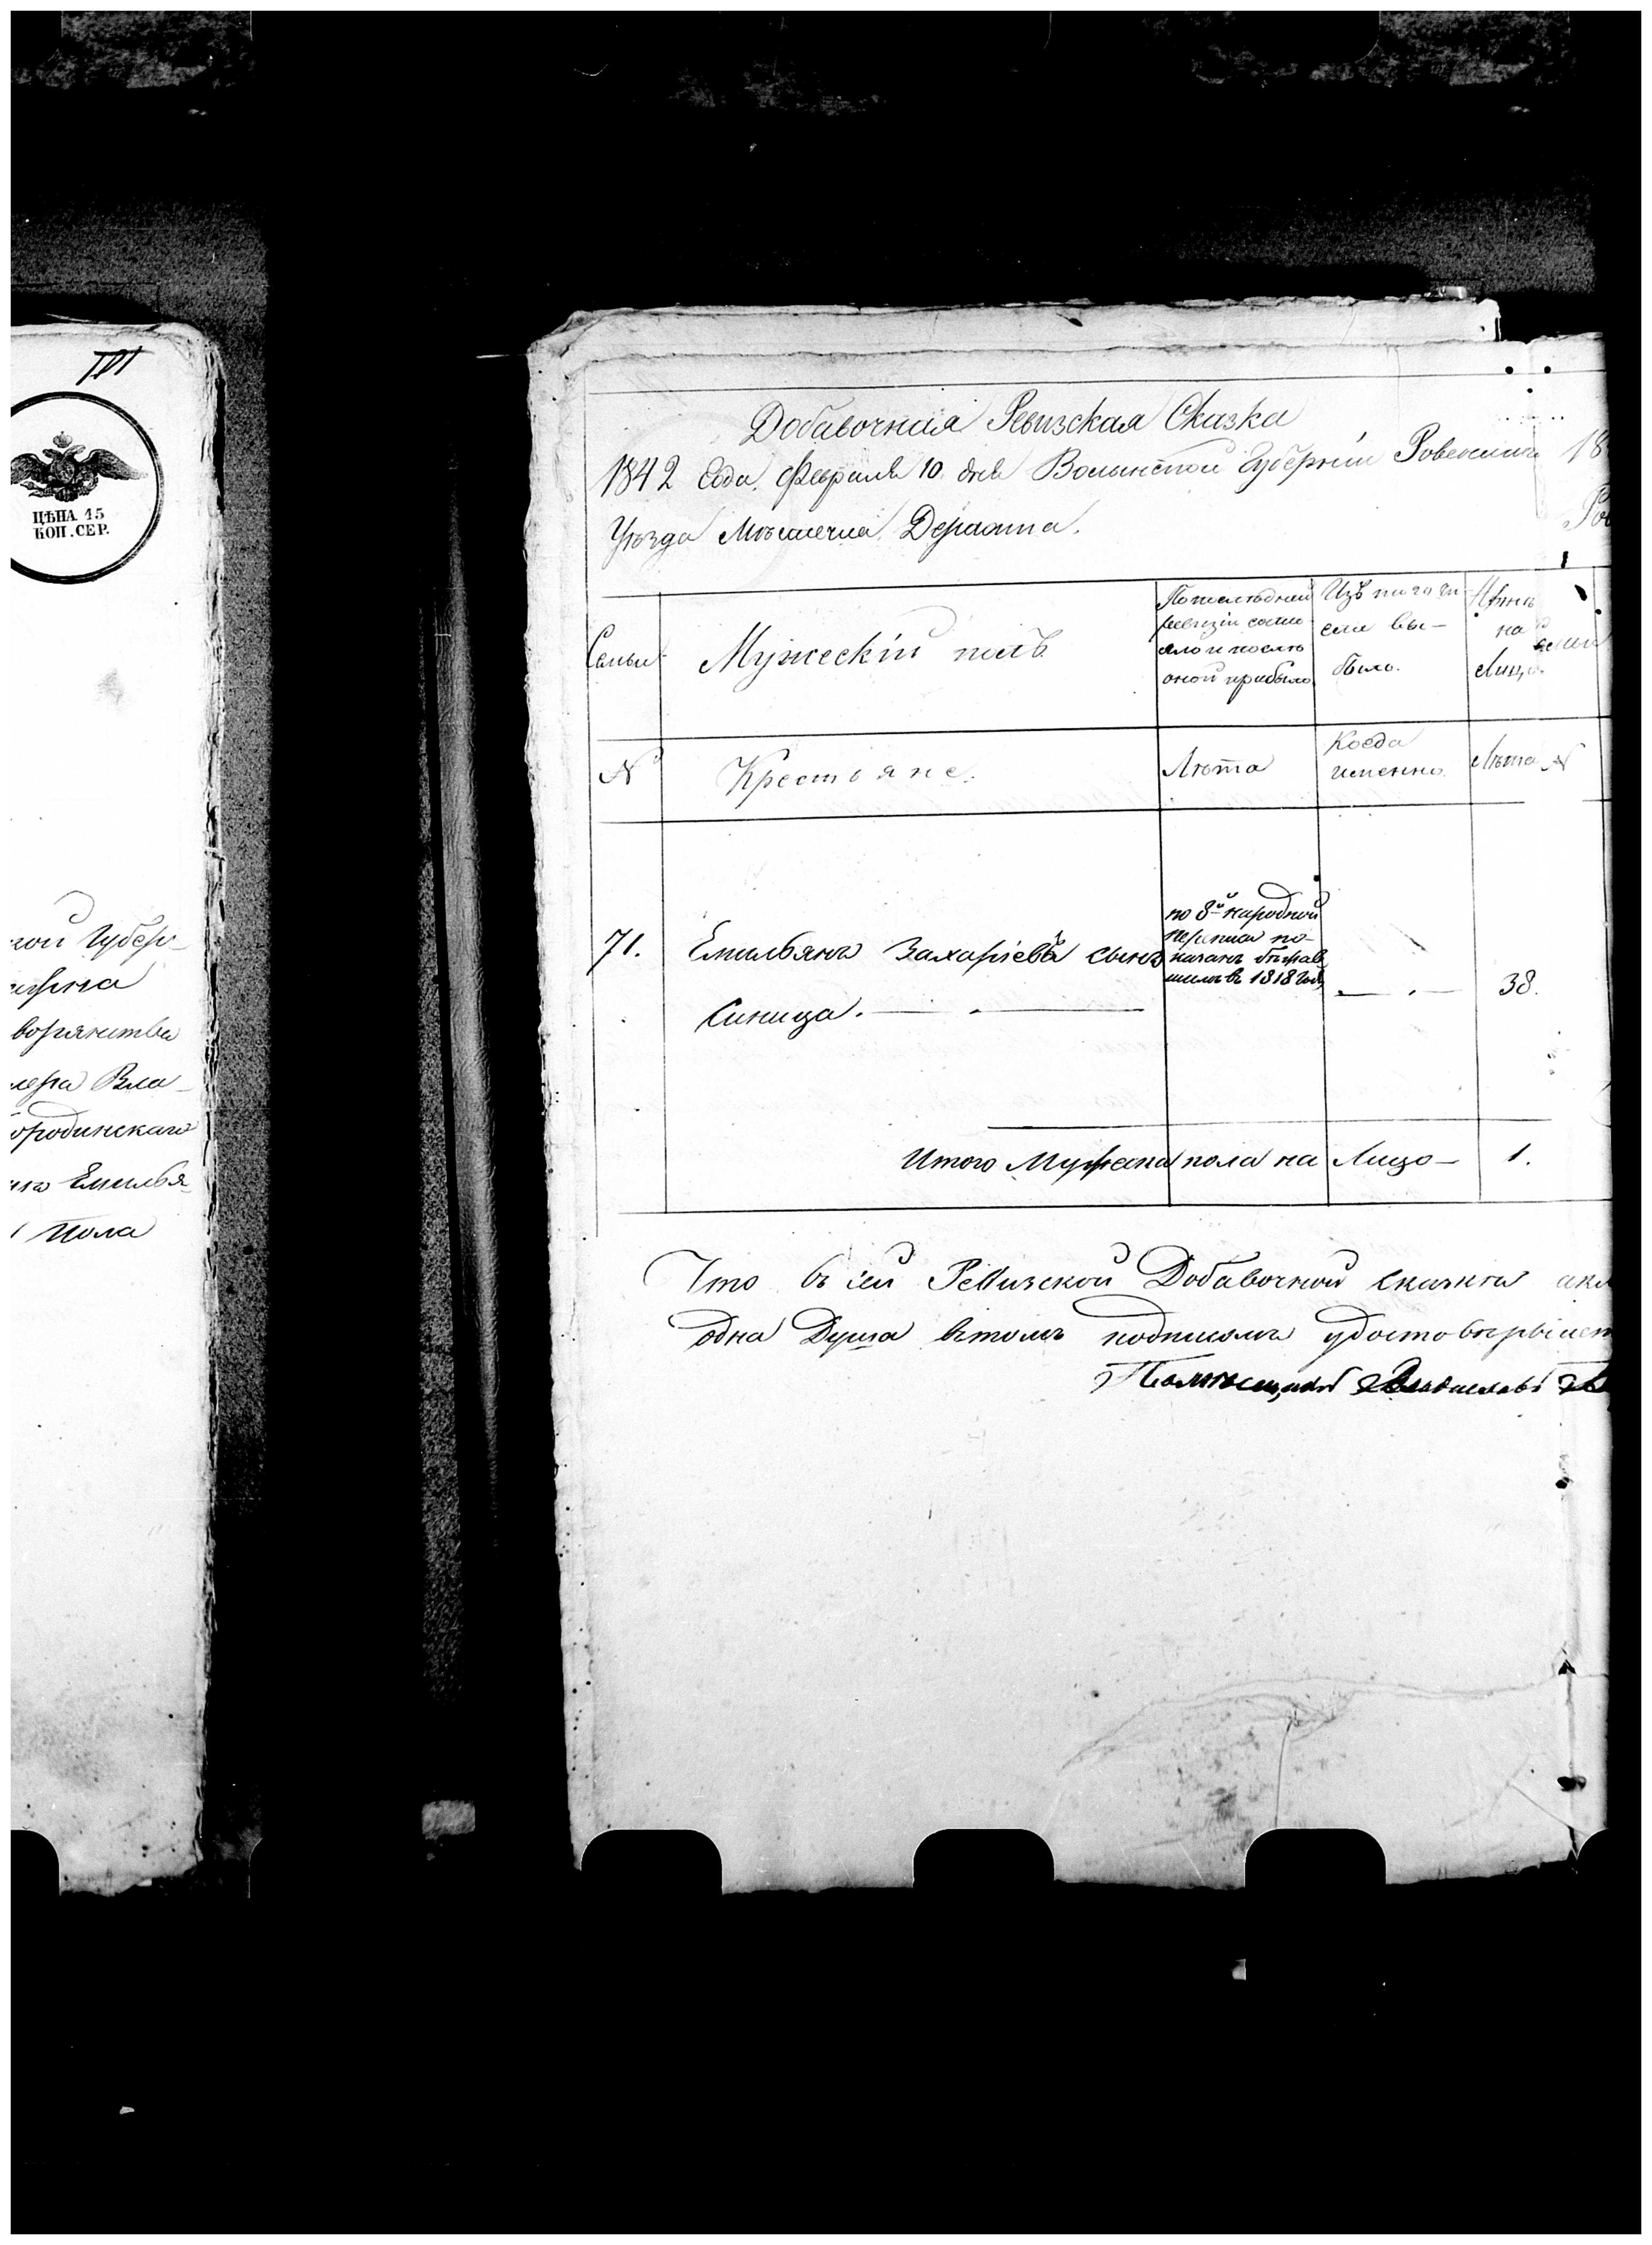 ЦѢНА 15
КОП. СЕР.
кой Губер-
ворянства
Вла-
ородинскаго
Емилья-
Пола
Добавочная Ревизская Сказка
1842 Года Февраля 10 дня Волынской Губерніи Ровенскаго
Уѣзда Мѣстечка Деражна.
Семьи
Мужескій полъ
По последней ревизіи состояло и послѣ оной прибыло
Изъ того числа выбыло.
Нынѣ на Лицо.
N
Крестьяне.
Лѣта
Когда именно
Лѣта
N
71.
Емильянъ Захаріевъ сынъ
Синица.
по 8й народной
переписи по-
казанъ бѣжав
шимъ въ 1818 году
38.
Итого Мужеска пола на Лицо — 1.
Что въ сей Ревизской Добавочной сказкѣ
одна Душа въ томъ подписомъ удостовѣряетъ
Помѣщикъ Владиславъ